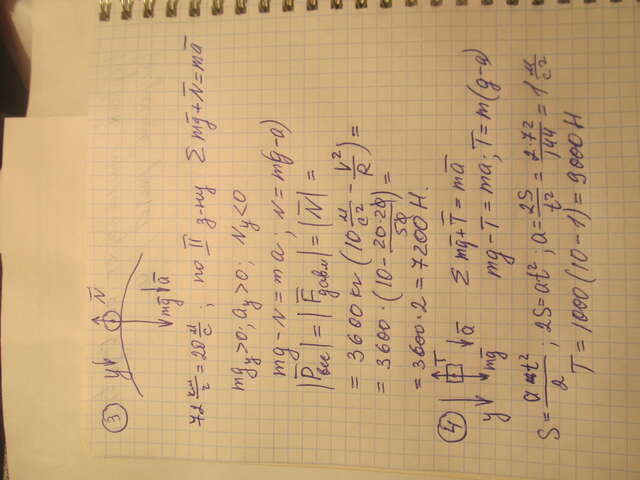 ③ y N̅
mg̅ a̅
72 км/ч = 20 м/с ; по II з-ну Σ mg̅ + N̅ = ma̅
mgy>0; ay>0; Ny<0
mg - N = ma; N = m(g-a)
|P̅вес| = |F̅давл| = |N̅| =
= 3600 кг (10 м/с² - V²/R) =
= 3600 · (10 - 20·20/50) =
= 3600·2 = 7200 Н.
④ T̅ a̅ Σ mg̅ + T̅ = ma̅
y mg̅ mg - T = ma; T = m(g-a)
S = at²/2 ; 2S = at² ; a = 2S/t² = 2·72/144 = 1 м/с²
T = 1000 (10 - 1) = 9000 Н